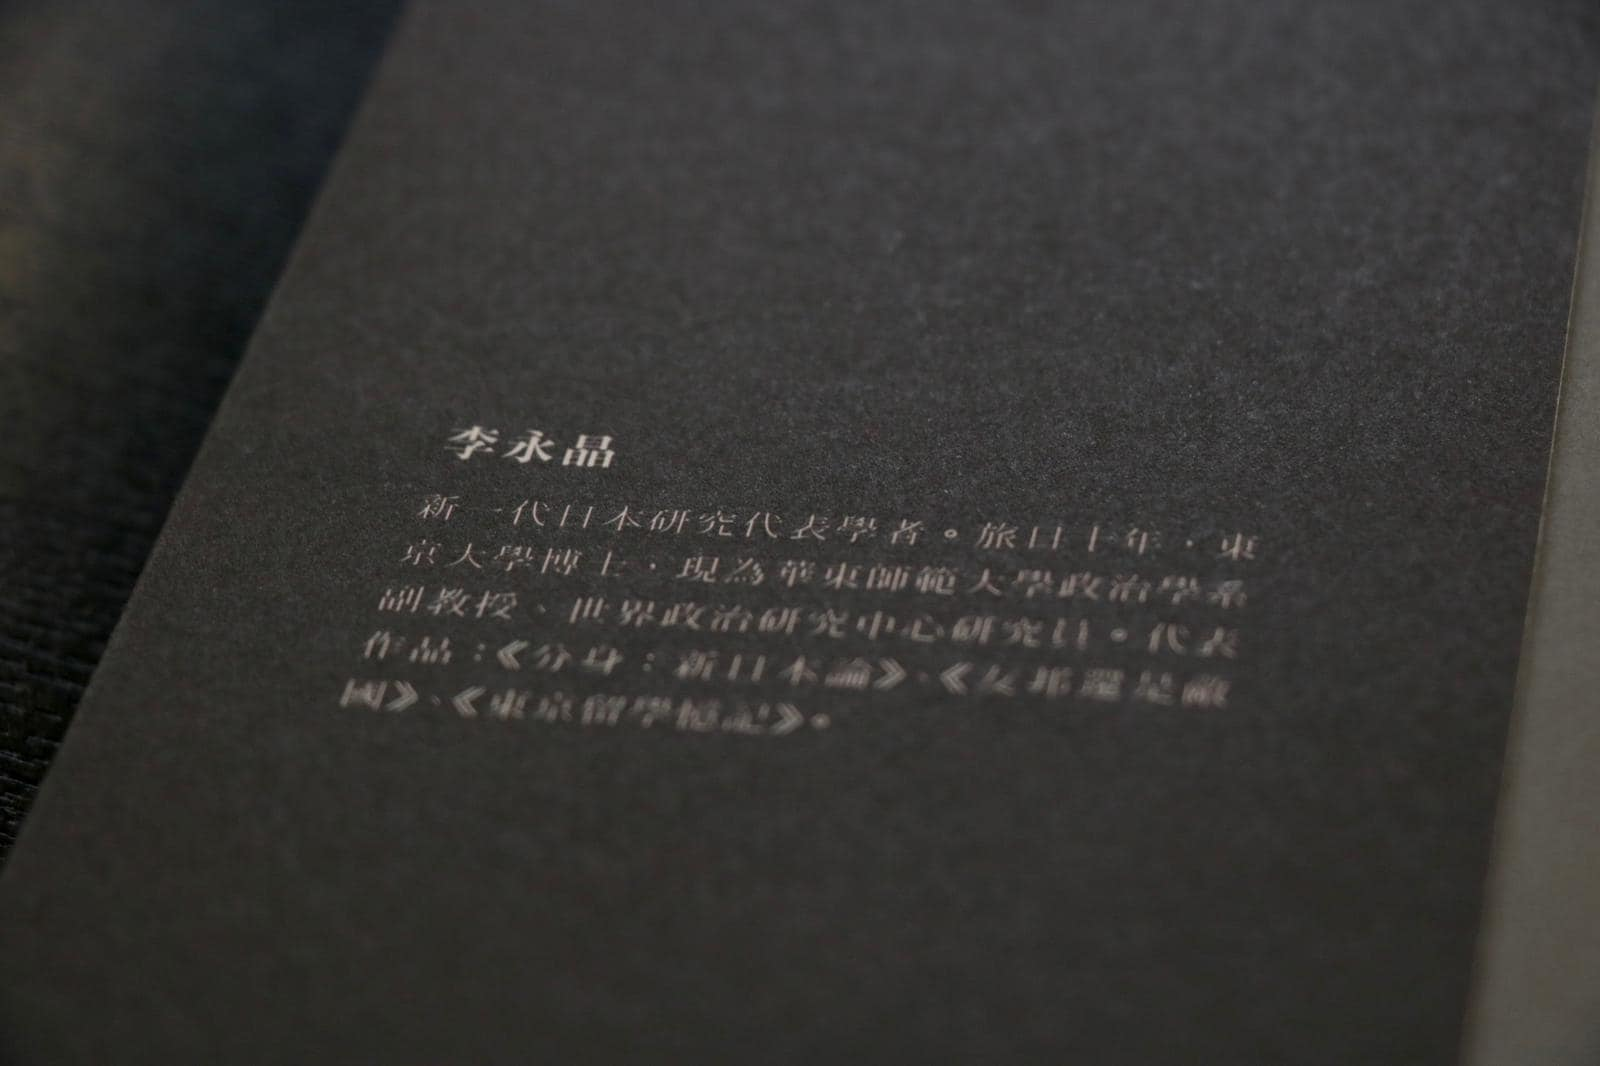 李永晶
新一代日本研究代表學者。旅日十年，東
京大學博士，現為華東師範大學政治學系
副教授、世界政治研究中心研究員。代表
作品：《分身：新日本論》、《友邦還是敵
國》、《東京留學憶記》。